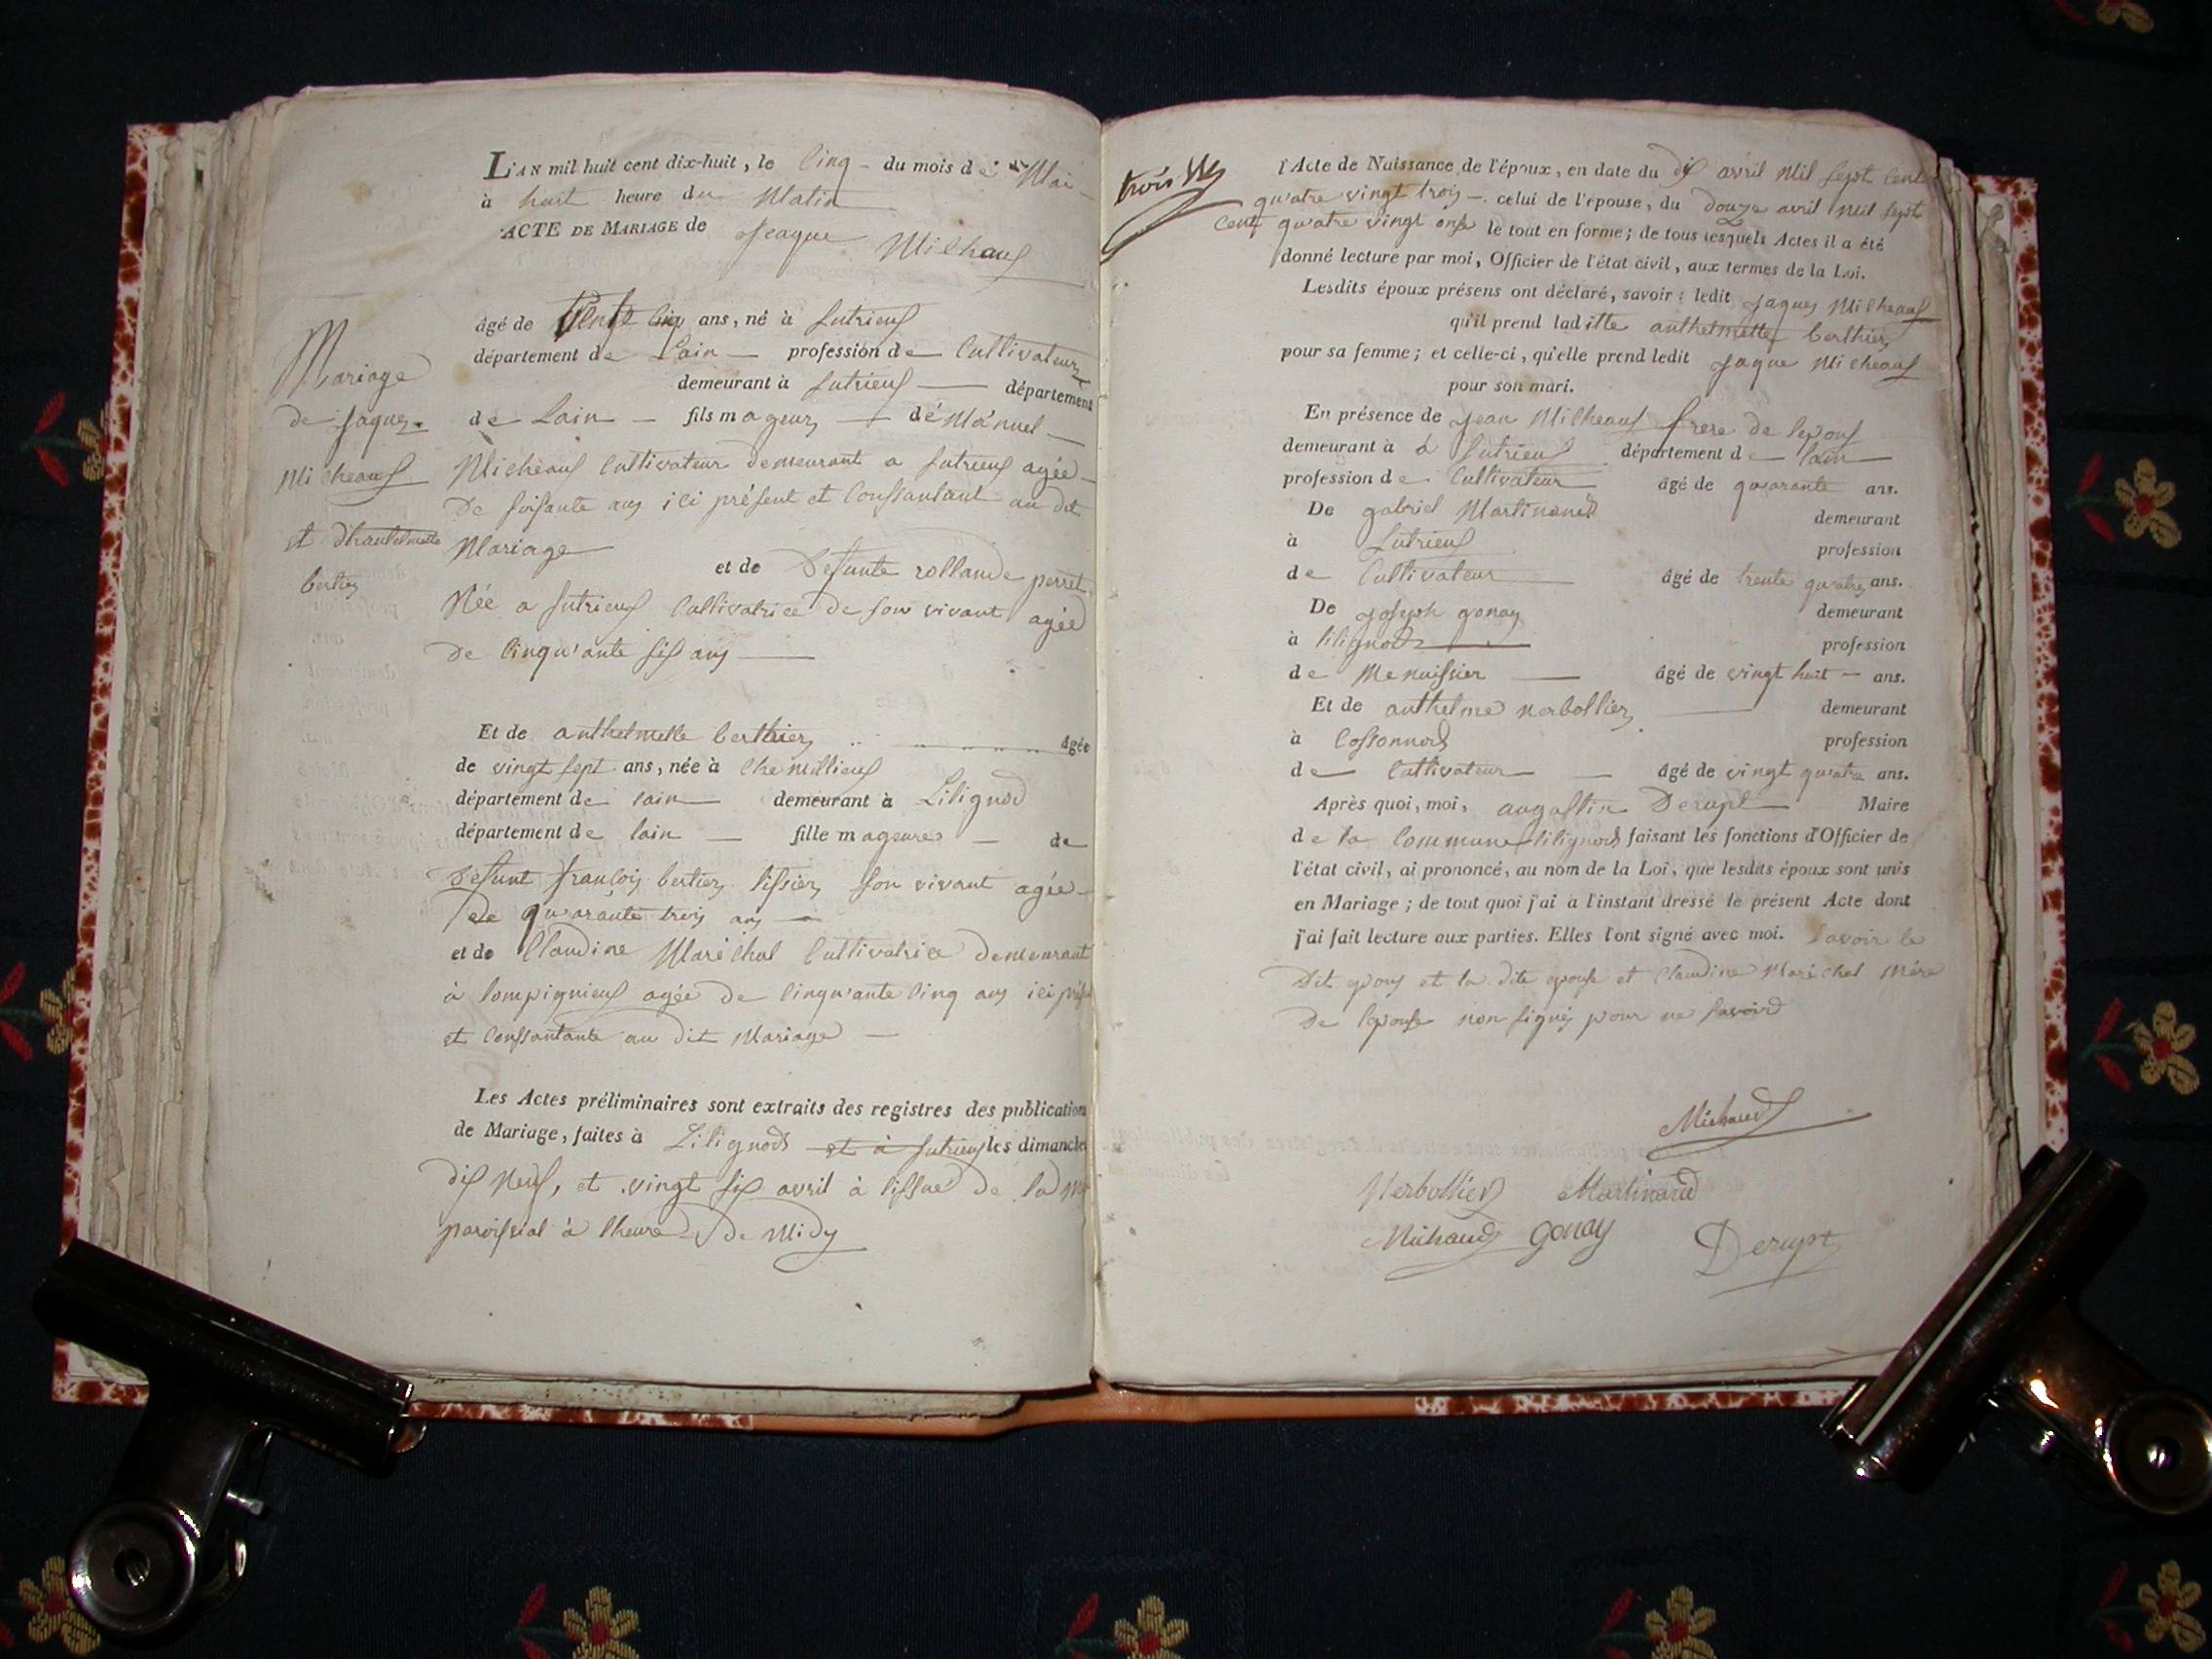 L'AN mil huit cent dix-huit, le Cinq - du mois de Mai
à huit heure du Matin
ACTE DE MARIAGE de Jeaque Micheaux
âgé de trente cinq ans, né à Sutrieux
département de Lain - profession de Cultivateur
demeurant à Sutrieux - département
de Lain - fils mageur - de Manuel -
Micheaux Cultivateur demeurant a Sutrieux agée
De soisante ans ici présent et Conssantant au dit
Mariage
et de Defunte rollande perret
Née a Sutrieux Cultivatrice de son vivant agée
de Cinqu'ante six ans
Mariage
de Jaques
Micheaux
et dhanthelmette
bertier
Et de anthelmette berthier âgée
de vingt sept ans, née à
département de lain demeurant à Lilignod
département de lain - fille mageure - de
Defunt françois bertier tissier son vivant agée
De quarante trois ans
et de Claudine Maréchal Cultivatrice demeurant
à Compignieux agée de Cinqu'ante Cinq ans ici
et Conssantante au dit Mariage
Les Actes préliminaires sont extraits des registres des publications
de Mariage, faites à Lilignod et à Sutrieux les dimanches
dix Neuf, et vingt six avril à lissue de la
paroissial à lheure De Midy
trois
l'Acte de Naissance de l'époux, en date du dix avril Mil Sept Cent
quatre vingt trois - celui de l'épouse, du Douze avril Mil Sept
Cent quatre vingt onze le tout en forme; de tous lesquels Actes il a été
donné lecture par moi, Officier de l'état civil, aux termes de la Loi.
Lesdits époux présens ont déclaré, savoir: ledit Jaques Micheaux
qu'il prend laditte anthelmette berthier
pour sa femme; et celle-ci, qu'elle prend ledit Jaque Micheaux
pour son mari.
En présence de Jean Micheaux frere de lepoux
demeurant à à Sutrieux département de lain
profession de Cultivateur âgé de quarante ans.
De gabriel Martinand demeurant
à Sutrieux profession
de Cultivateur âgé de trente quatre ans.
De Joseph gonay demeurant
à lilignod profession
de Menuissier âgé de vingt huit - ans.
Et de anthelme nerbollier demeurant
à Cossonnod profession
de Cultivateur - âgé de vingt quatre ans.
Après quoi, moi, augustin Derupt Maire
de la Commune lilignod faisant les fonctions d'Officier de
l'état civil, ai prononcé, au nom de la Loi, que lesdits époux sont unis
en Mariage; de tout quoi j'ai à l'instant dressé le présent Acte dont
j'ai fait lecture aux parties. Elles l'ont signé avec moi. Savoir le
Dit epoux et la dite epouse et Claudine Maréchal Mère
De lepouse non signés pour ne savoir
Michaud
Nerbollier Martinand
Michaud Gonay Derupt